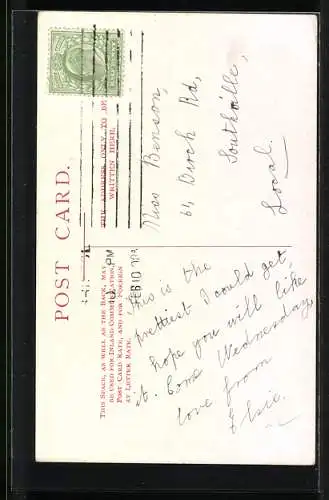 POST CARD.
THIS SPACE, AS WELL AS THE BACK, MAY
BE USED FOR INLAND COMMUNICATION,
POST CARD RATE, AND FOR FOREIGN
AT LETTER RATE.
THE ADDRESS ONLY TO BE
WRITTEN HERE.
PM
FEB 10
This is the
prettiest I could get,
hope you will like
it. Come Wednesday,
love from
Elsie.
Miss Benson,
61, Birch Rd,
Southville,
Local.